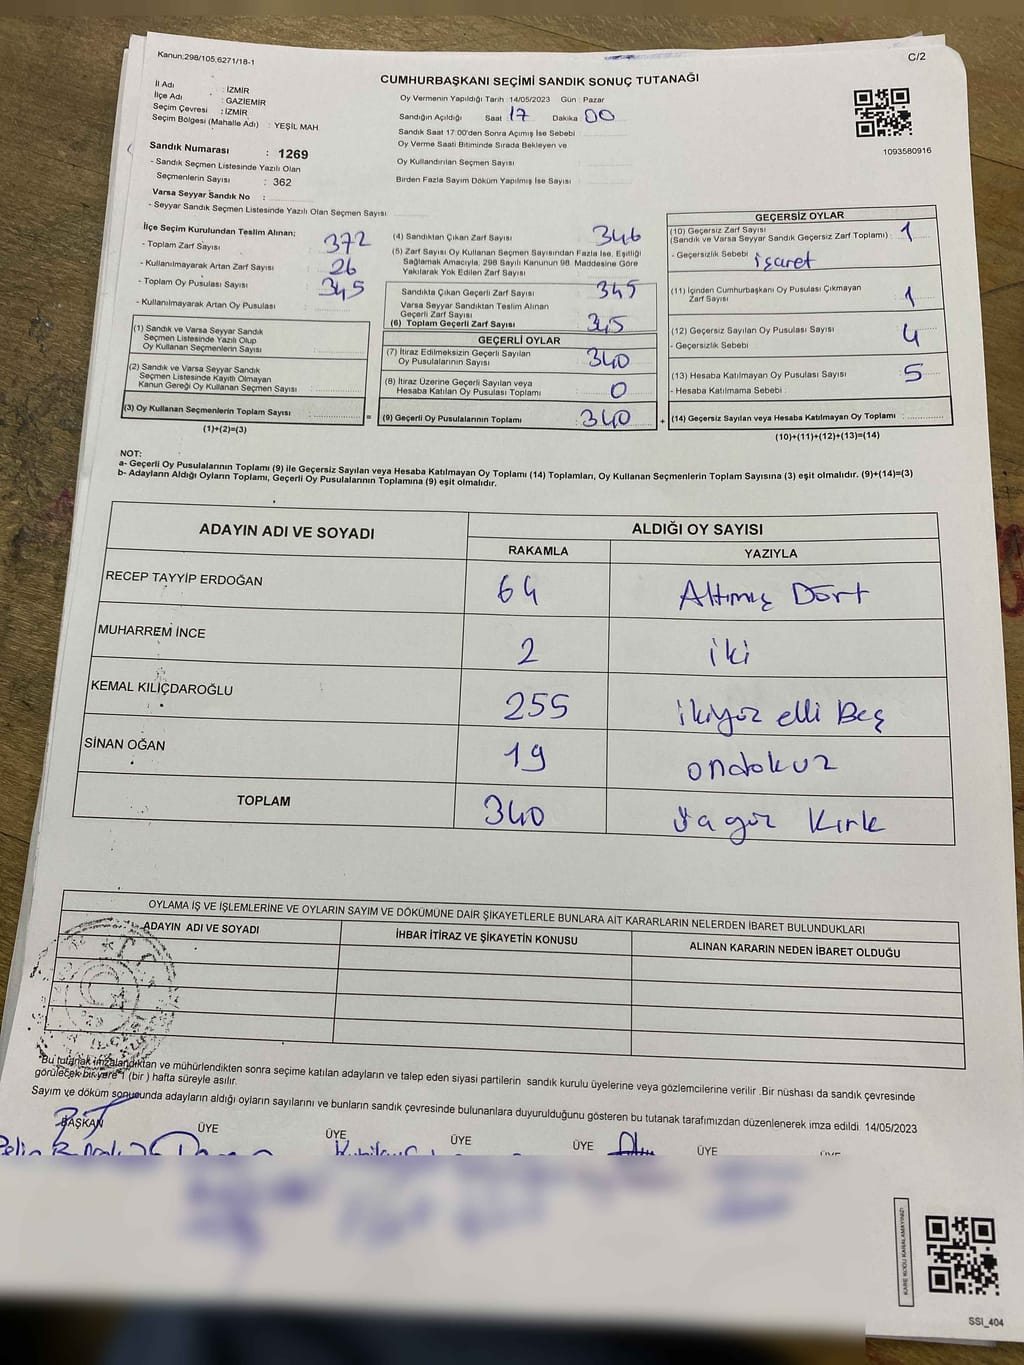 Kanun:298/105,6271/18-1
C/2
CUMHURBAŞKANI SEÇİMİ SANDIK SONUÇ TUTANAĞI
İl Adı : İZMİR
İlçe Adı : GAZİEMİR
Seçim Çevresi : İZMİR
Seçim Bölgesi (Mahalle Adı) : YEŞİL MAH
Sandık Numarası : 1269
- Sandık Seçmen Listesinde Yazılı Olan
Seçmenlerin Sayısı : 362
Varsa Seyyar Sandık No :
- Seyyar Sandık Seçmen Listesinde Yazılı Olan Seçmen Sayısı
Oy Vermenin Yapıldığı Tarih : 14/05/2023 Gün : Pazar
Sandığın Açıldığı Saat 17 Dakika 00
Sandık Saat 17:00'den Sonra Açımış İse Sebebi
Oy Verme Saati Bitiminde Sırada Bekleyen ve
Oy Kullandırılan Seçmen Sayısı
Birden Fazla Sayım Döküm Yapılmış İse Sayısı
1093580916
İlçe Seçim Kurulundan Teslim Alınan;
- Toplam Zarf Sayısı 372
- Kullanılmayarak Artan Zarf Sayısı 26
- Toplam Oy Pusulası Sayısı 345
- Kullanılmayarak Artan Oy Pusulası
(1) Sandık ve Varsa Seyyar Sandık
Seçmen Listesinde Yazılı Olup
Oy Kullanan Seçmenlerin Sayısı
(2) Sandık ve Varsa Seyyar Sandık
Seçmen Listesinde Kayıtlı Olmayan
Kanun Gereği Oy Kullanan Seçmen Sayısı
(3) Oy Kullanan Seçmenlerin Toplam Sayısı =
(1)+(2)=(3)
(4) Sandıktan Çıkan Zarf Sayısı 346
(5) Zarf Sayısı Oy Kullanan Seçmen Sayısından Fazla İse, Eşitliği
Sağlamak Amacıyla, 298 Sayılı Kanunun 98. Maddesine Göre
Yakılarak Yok Edilen Zarf Sayısı
Sandıkta Çıkan Geçerli Zarf Sayısı 345
Varsa Seyyar Sandıktan Teslim Alınan
Geçerli Zarf Sayısı
(6) Toplam Geçerli Zarf Sayısı 345
GEÇERLİ OYLAR
(7) İtiraz Edilmeksizin Geçerli Sayılan
Oy Pusulalarının Sayısı 340
(8) İtiraz Üzerine Geçerli Sayılan veya
Hesaba Katılan Oy Pusulası Toplamı 0
(9) Geçerli Oy Pusulalarının Toplamı 340 +
GEÇERSİZ OYLAR
(10) Geçersiz Zarf Sayısı
(Sandık ve Varsa Seyyar Sandık Geçersiz Zarf Toplamı) : 1
- Geçersizlik Sebebi işaret
(11) İçinden Cumhurbaşkanı Oy Pusulası Çıkmayan
Zarf Sayısı 1
(12) Geçersiz Sayılan Oy Pusulası Sayısı 4
- Geçersizlik Sebebi
(13) Hesaba Katılmayan Oy Pusulası Sayısı 5
- Hesaba Katılmama Sebebi :
(14) Geçersiz Sayılan veya Hesaba Katılmayan Oy Toplamı :
(10)+(11)+(12)+(13)=(14)
NOT:
a- Geçerli Oy Pusulalarının Toplamı (9) ile Geçersiz Sayılan veya Hesaba Katılmayan Oy Toplamı (14) Toplamları, Oy Kullanan Seçmenlerin Toplam Sayısına (3) eşit olmalıdır. (9)+(14)=(3)
b- Adayların Aldığı Oyların Toplamı, Geçerli Oy Pusulalarının Toplamına (9) eşit olmalıdır.
ADAYIN ADI VE SOYADI ALDIĞI OY SAYISI
RAKAMLA YAZIYLA
RECEP TAYYİP ERDOĞAN 64 Altmış Dört
MUHARREM İNCE 2 iki
KEMAL KILIÇDAROĞLU 255 ikiyüz elli Beş
SİNAN OĞAN 19 ondokuz
TOPLAM 340 Kırk
OYLAMA İŞ VE İŞLEMLERİNE VE OYLARIN SAYIM VE DÖKÜMÜNE DAİR ŞİKAYETLERLE BUNLARA AİT KARARLARIN NELERDEN İBARET BULUNDUKLARI
ADAYIN ADI VE SOYADI İHBAR İTİRAZ VE ŞİKAYETİN KONUSU ALINAN KARARIN NEDEN İBARET OLDUĞU
Bu tutanak imzalandıktan ve mühürlendikten sonra seçime katılan adayların ve talep eden siyasi partilerin sandık kurulu üyelerine veya gözlemcilerine verilir .Bir nüshası da sandık çevresinde
görülecek bir yere 1 (bir ) hafta süreyle asılır.
Sayım ve döküm sonucunda adayların aldığı oyların sayılarını ve bunların sandık çevresinde bulunanlara duyurulduğunu gösteren bu tutanak tarafımızdan düzenlenerek imza edildi. 14/05/2023
BAŞKAN ÜYE ÜYE ÜYE ÜYE ÜYE
KARE KODU KARALAMAYINIZ!
SSI_404